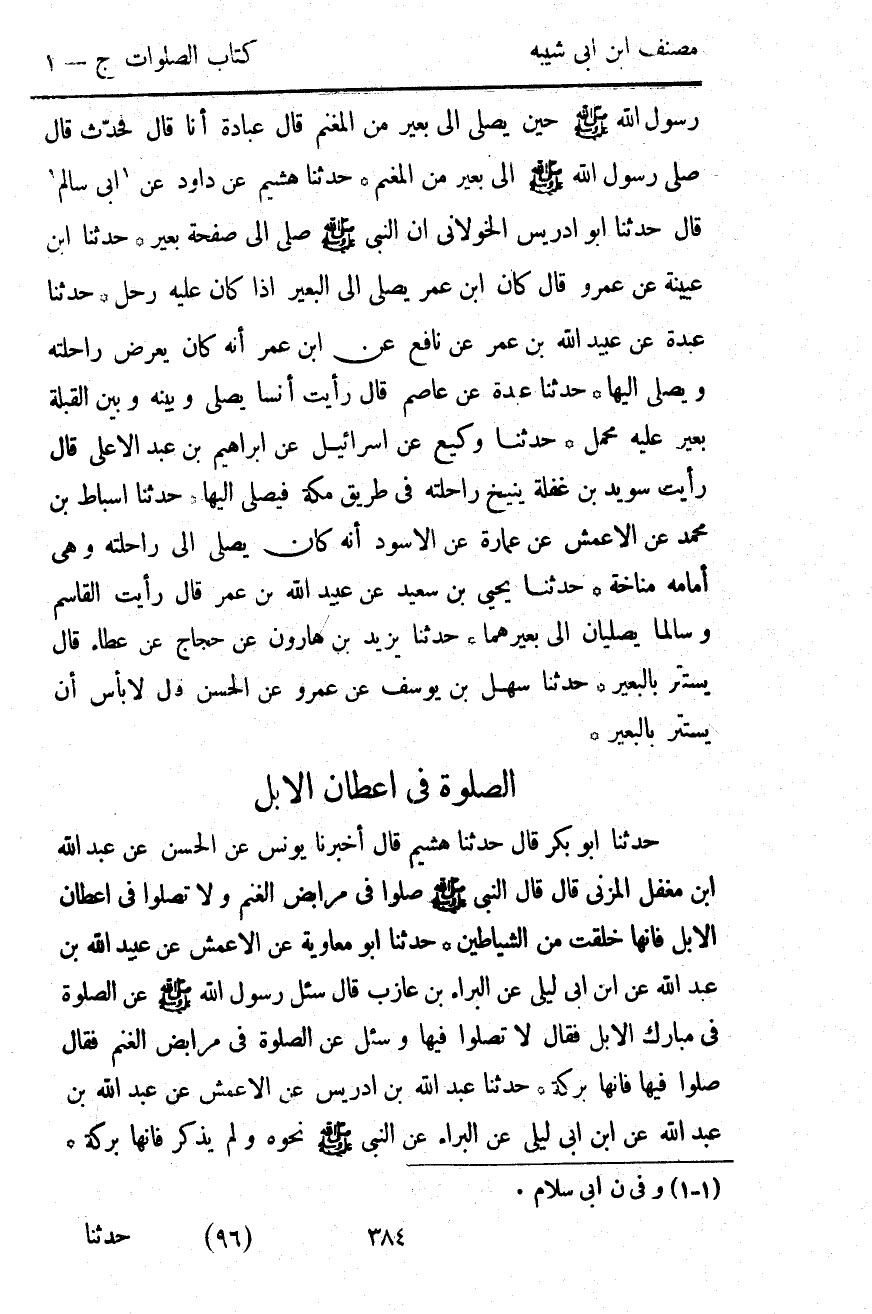 مصنف ابن ابى شيبه كتاب الصلوات ج — ١
رسول الله ﷺ حين يصلى الى بعير من المغنم قال عبادة أنا قال فحدّث قال
صلى رسول الله ﷺ الى بعير من المغنم * حدثنا هشيم عن داود عن ١ابى سالم١
قال حدثنا ابو ادريس الخولانى ان النبى ﷺ صلى الى صفحة بعير * حدثنا ابن
عيينة عن عمرو قال كان ابن عمر يصلى الى البعير اذا كان عليه رحل * حدثنا
عبدة عن عبيد الله بن عمر عن نافع عن ابن عمر أنه كان يعرض راحلته
و يصلى اليها * حدثنا عبدة عن عاصم قال رأيت أنسا يصلى و بينه و بين القبلة
بعير عليه محمل * حدثنا وكيع عن اسرائيل عن ابراهيم بن عبد الاعلى قال
رأيت سويد بن غفلة ينيخ راحلته فى طريق مكة فيصلى اليها * حدثنا اسباط بن
محمد عن الاعمش عن عمارة عن الاسود أنه كان يصلى الى راحلته و هى
أمامه مناخة * حدثنا يحيى بن سعيد عن عبيد الله بن عمر قال رأيت القاسم
و سالما يصليان الى بعيرهما * حدثنا يزيد بن هارون عن حجاج عن عطاء قال
يستتر بالبعير * حدثنا سهل بن يوسف عن عمرو عن الحسن قال لابأس أن
يستتر بالبعير *
الصلوة فى اعطان الابل
حدثنا ابو بكر قال حدثنا هشيم قال أخبرنا يونس عن الحسن عن عبد الله
ابن مغفل المزنى قال قال النبى ﷺ صلوا فى مرابض الغنم و لا تصلوا فى اعطان
الابل فانها خلقت من الشياطين * حدثنا ابو معاوية عن الاعمش عن عبد الله بن
عبد الله عن ابن ابى ليلى عن البراء بن عازب قال سئل رسول الله ﷺ عن الصلوة
فى مبارك الابل فقال لا تصلوا فيها و سئل عن الصلوة فى مرابض الغنم فقال
صلوا فيها فانها بركة * حدثنا عبد الله بن ادريس عن الاعمش عن عبد الله بن
عبد الله عن ابن ابى ليلى عن البراء عن النبى ﷺ نحوه و لم يذكر فانها بركة *
(١-١) و فى ن ابى سلام .
٣٨٤ (٩٦) حدثنا